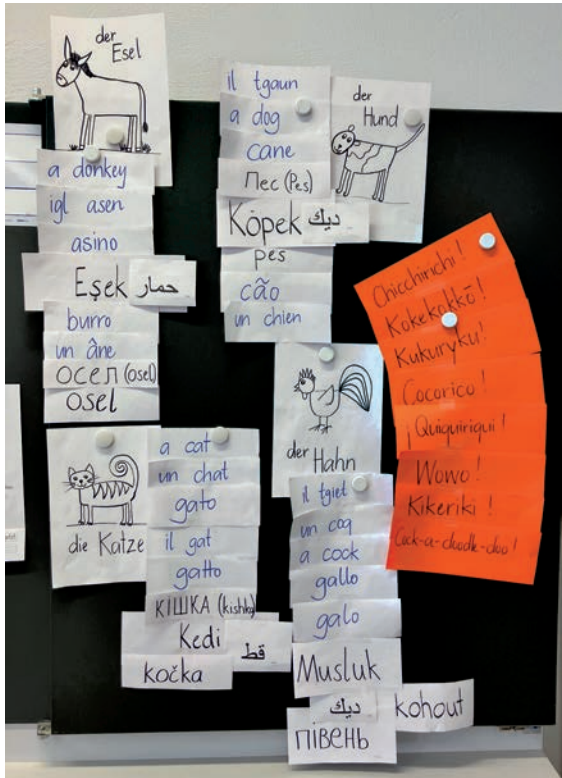 der
Esel
a donkey
igl asen
asino
Eşek حمار
burro
un âne
осел (osel)
osel
il tgaun
a dog
cane
Пес (Pes)
Köpek ديك
pes
cão
un chien
der
Hund
a cat
un chat
gato
il gat
gatto
КІШКА (kishka)
Kedi
قط
kočka
die Katze
der Hahn
il tgiet
un coq
a cock
gallo
galo
Musluk
ديك
kohout
ПІВЕНЬ
Chicchirichi!
Kokekokkō!
Kukuryku!
Cocorico!
¡Quiquiriqui!
Wowo!
Kikeriki!
Cock-a-doodle-doo!